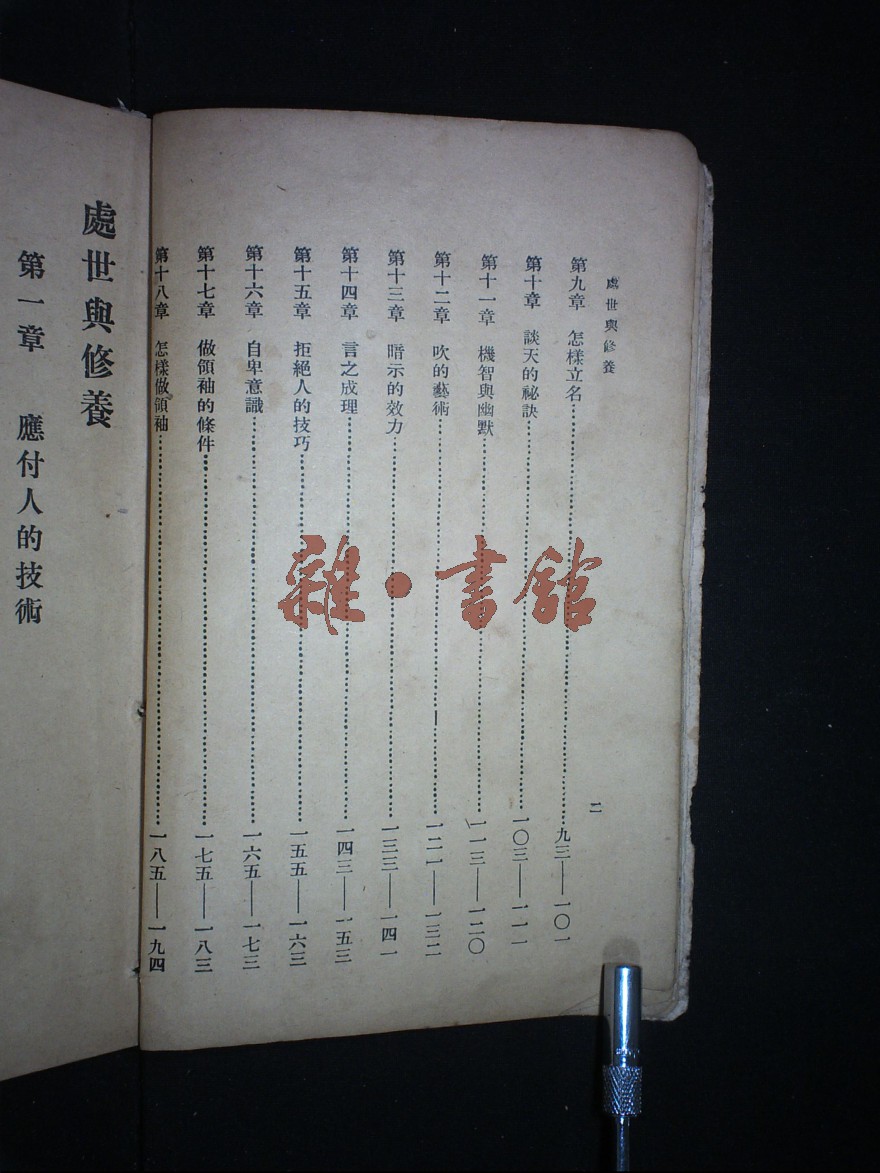 處世與修養
二
第九章 怎樣立名……九三——一〇一
第十章 談天的祕訣……一〇三——一一一
第十一章 機智與幽默……一一三——一二〇
第十二章 吹的藝術……一二一——一三二
第十三章 暗示的效力……一三三——一四一
第十四章 言之成理……一四三——一五三
第十五章 拒絕人的技巧……一五五——一六三
第十六章 自卑意識……一六五——一七三
第十七章 做領袖的條件……一七五——一八三
第十八章 怎樣做領袖……一八五——一九四
處世與修養
第一章 應付人的技術
雜·書館